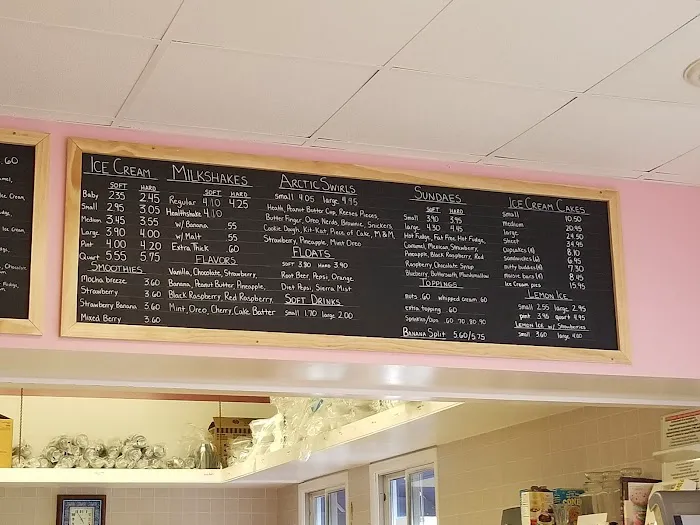 .60
ICE CREAM
SOFT HARD
Baby 2.35 2.45
Small 2.95 3.05
Medium 3.45 3.55
Large 3.90 4.00
Pint 4.00 4.20
Quart 5.55 5.75
SMOOTHIES
Mocha breeze 3.60
Strawberry 3.60
Strawberry Banana 3.60
Mixed Berry 3.60
MILKSHAKES
SOFT HARD
Regular 4.10 4.25
Healthshake 4.10
w/ Banana .55
w/ Malt .55
Extra Thick .60
FLAVORS
Vanilla, Chocolate, Strawberry,
Banana, Peanut Butter, Pineapple,
Black Raspberry, Red Raspberry,
Mint, Oreo, Cherry, Cake Batter
ARCTIC SWIRLS
small 4.05 large 4.95
Heath, Peanut Butter Cup, Reeses Pieces,
Butter Finger, Oreo, Nerds, Brownie, Snickers,
Cookie Dough, Kit-Kat, Piece of Cake, M&M,
Strawberry, Pineapple, Mint Oreo
FLOATS
SOFT 3.80 HARD 3.90
Root Beer, Pepsi, Orange
Diet Pepsi, Sierra Mist
SOFT DRINKS
small 1.70 large 2.00
SUNDAES
SOFT HARD
small 3.90 3.95
large 4.30 4.45
Hot Fudge, Fat Free Hot Fudge,
Caramel, Mexican, Strawberry,
Pineapple, Black Raspberry, Red
Raspberry, Chocolate Syrup
Blueberry, Butterscotch, Marshmallow
TOPPINGS
nuts .60 whipped cream .60
extra topping .60
Sprinkles/Dip .60 .70 .80 .90
BANANA SPLIT 5.60/5.75
ICE CREAM CAKES
small 10.50
medium 20.95
large 24.50
Sheet 34.95
Cupcakes 8.10
Sandwiches 6.95
7.30
8.45
Ice Cream pies 15.95
LEMON ICE
Small 2.55 large 2.95
pint 3.95 quart 4.95
LEMON ICE w/ Strawberries
small 3.60 large 4.00